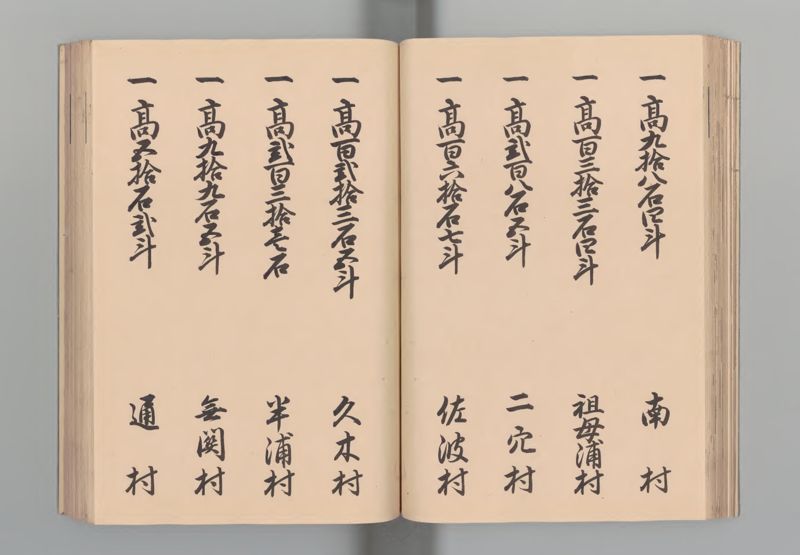 一 高九拾八石四斗 南村
一 高百三拾三石四斗 祖母浦村
一 高弐百八石五斗 二穴村
一 高百六拾石七斗 佐波村
一 高百弐拾三石五斗 久木村
一 高弐百三拾壱石 半浦村
一 高九拾九石五斗 無関村
一 高五拾石弐斗 通村